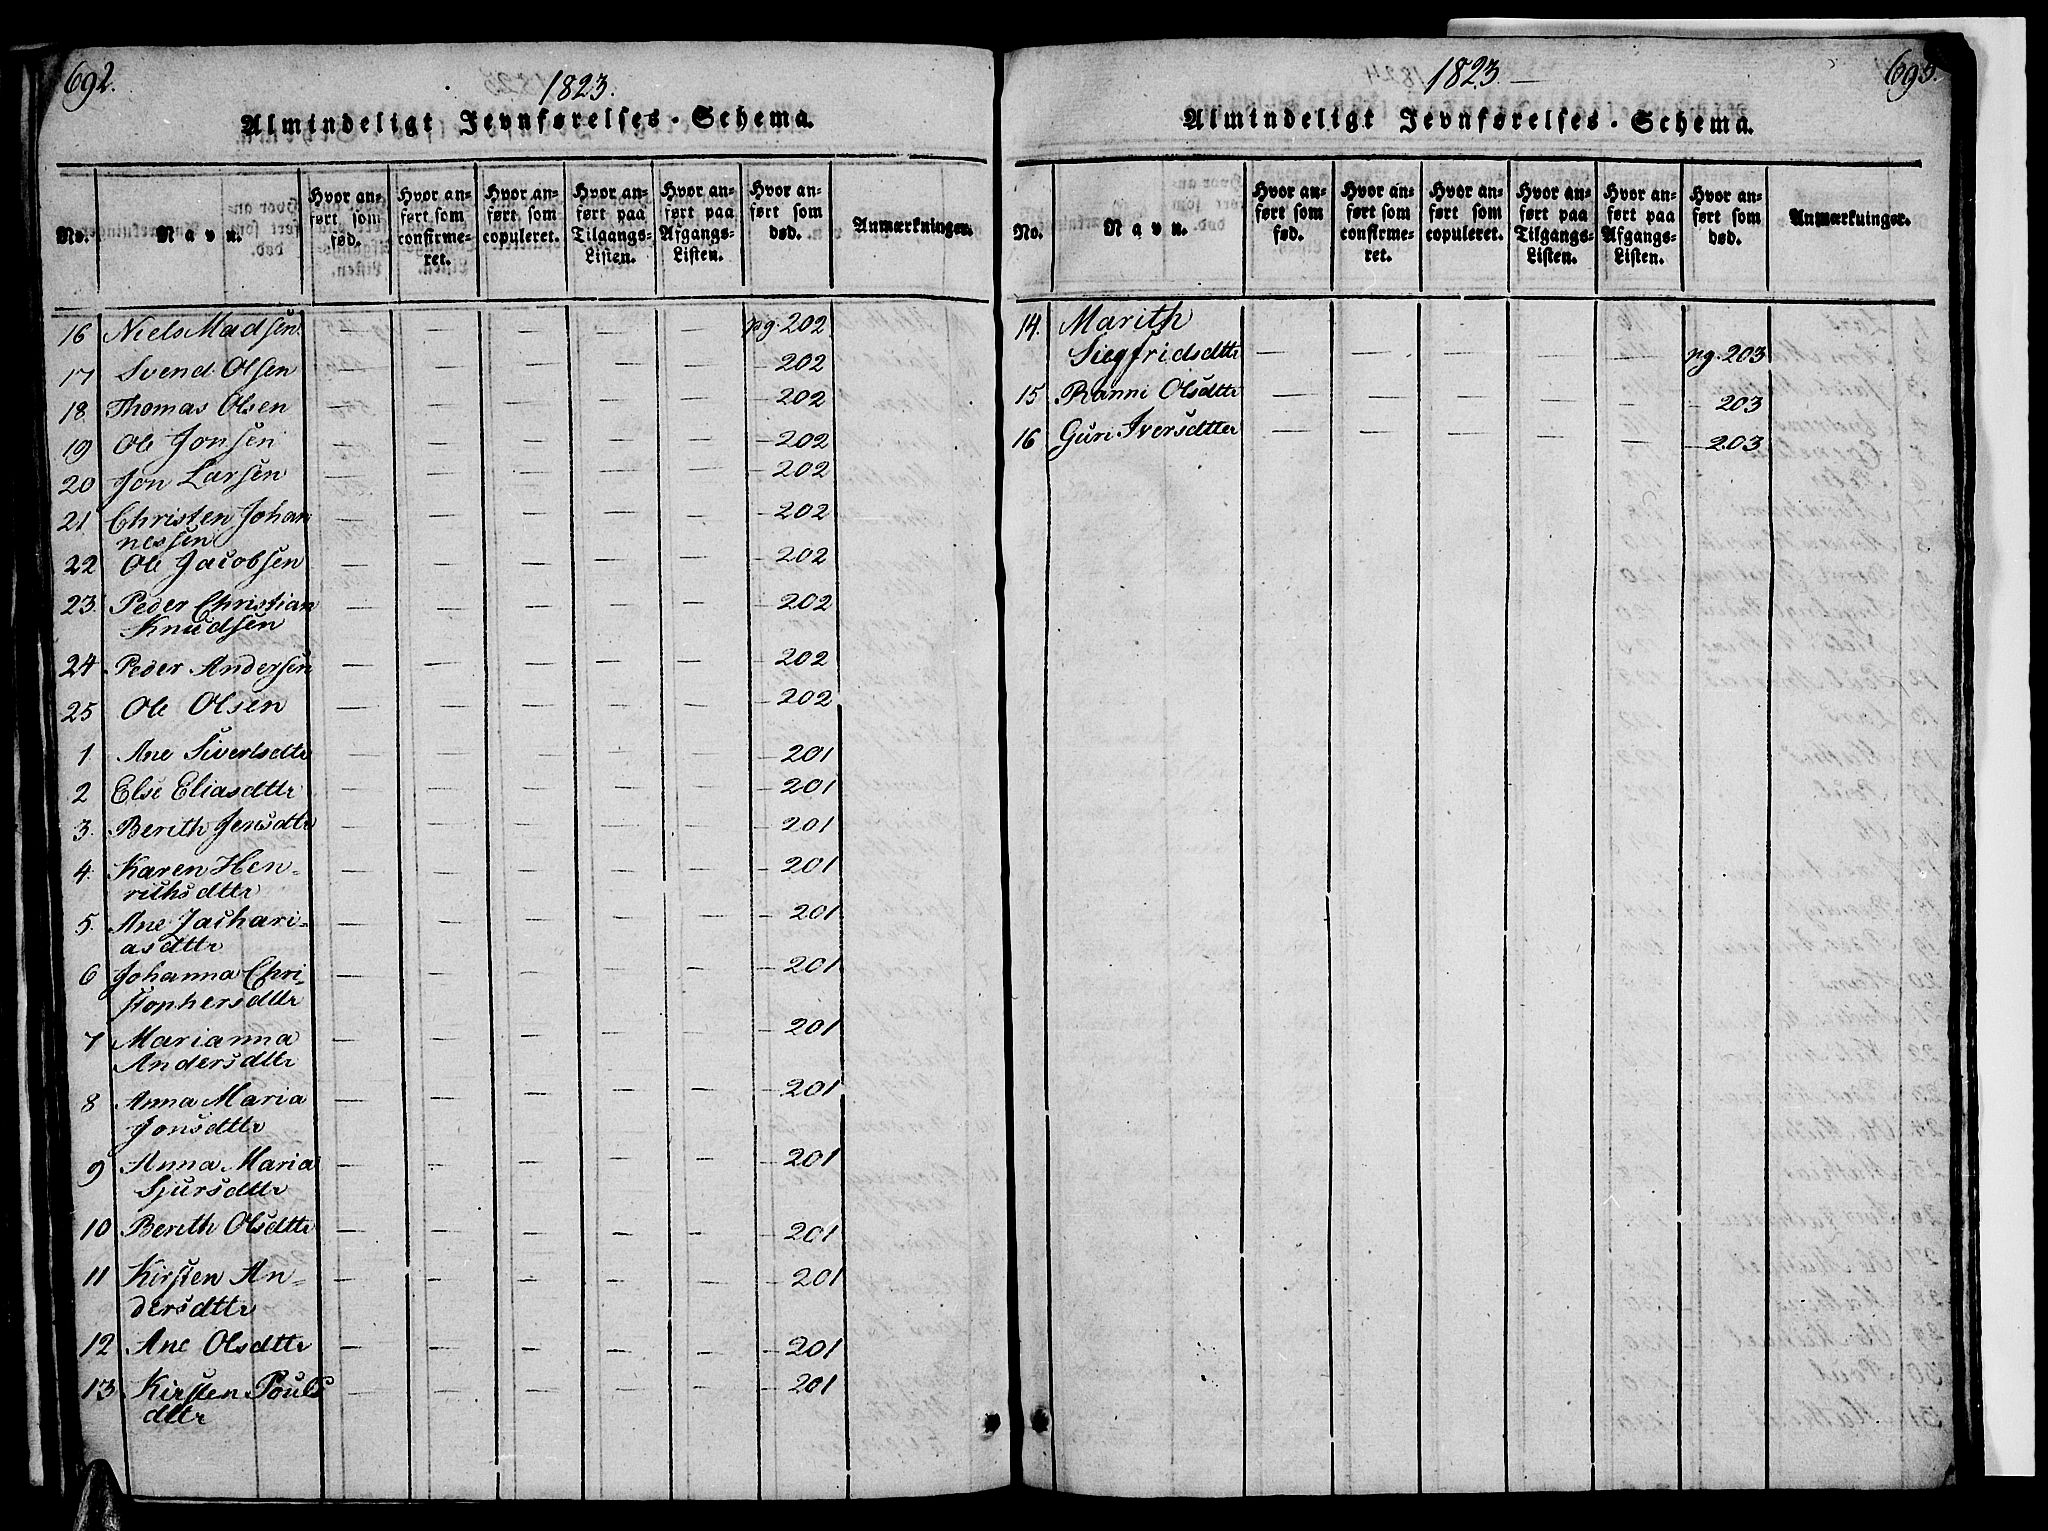 692.
1823.
Almindeligt Jevnførelses-Schema.
No. Navn. Hvor anført som fød. Hvor anført som confirmeret. Hvor anført som copuleret. Hvor anført paa Tilgangs-Listen. Hvor anført paa Afgangs-Listen. Hvor anført som død. Anmærkninger.
16 Niels Madsen — — — — — pg. 202
17 Svend Olsen — — — — — 202
18 Thomas Olsen — — — — — 202
19 Ole Jonsen — — — — — 202
20 Jon Larsen — — — — — 202
21 Christen Johan — — — — — 202
nessen
22 Ole Jacobsen — — — — — 202
23 Peder Christian — — — — — 202
Knudsen
24 Peder Andersen — — — — — 202
25 Ole Olsen — — — — — 202
1 Ane Sivertsdtr — — — — — 201
2 Else Eliasdttr — — — — — 201
3. Berith Jensdtr — — — — — 201
4. Karen Hen- — — — — — 201
richsdttr
5. Ane Zachari- — — — — — 201
asdttr
6 Johanna Chri- — — — — — 201
stophersdttr
7 Marianna — — — — — 201
Andersdttr
8 Anna Maria — — — — — 201
Jonsdttr
9 Anna Maria — — — — — 201
Sjursdttr
10 Berith Olsdttr — — — — — 201
11 Kirsten An- — — — — — 201
dersdttr
12 Ane Olsdttr — — — — — 201
13 Kirsten Pouls — — — — — 201
dttr
693.
1823. —
Almindeligt Jevnførelses-Schema.
No. Navn. Hvor anført som fød. Hvor anført som confirmeret. Hvor anført som copuleret. Hvor anført paa Tilgangs-Listen. Hvor anført paa Afgangs-Listen. Hvor anført som død. Anmærkninger.
14. Marith
Siegfridsdttr — — — — — pg. 203
15 Ranni Olsdttr — — — — — 203
16 Guri Iversdtter — — — — — 203